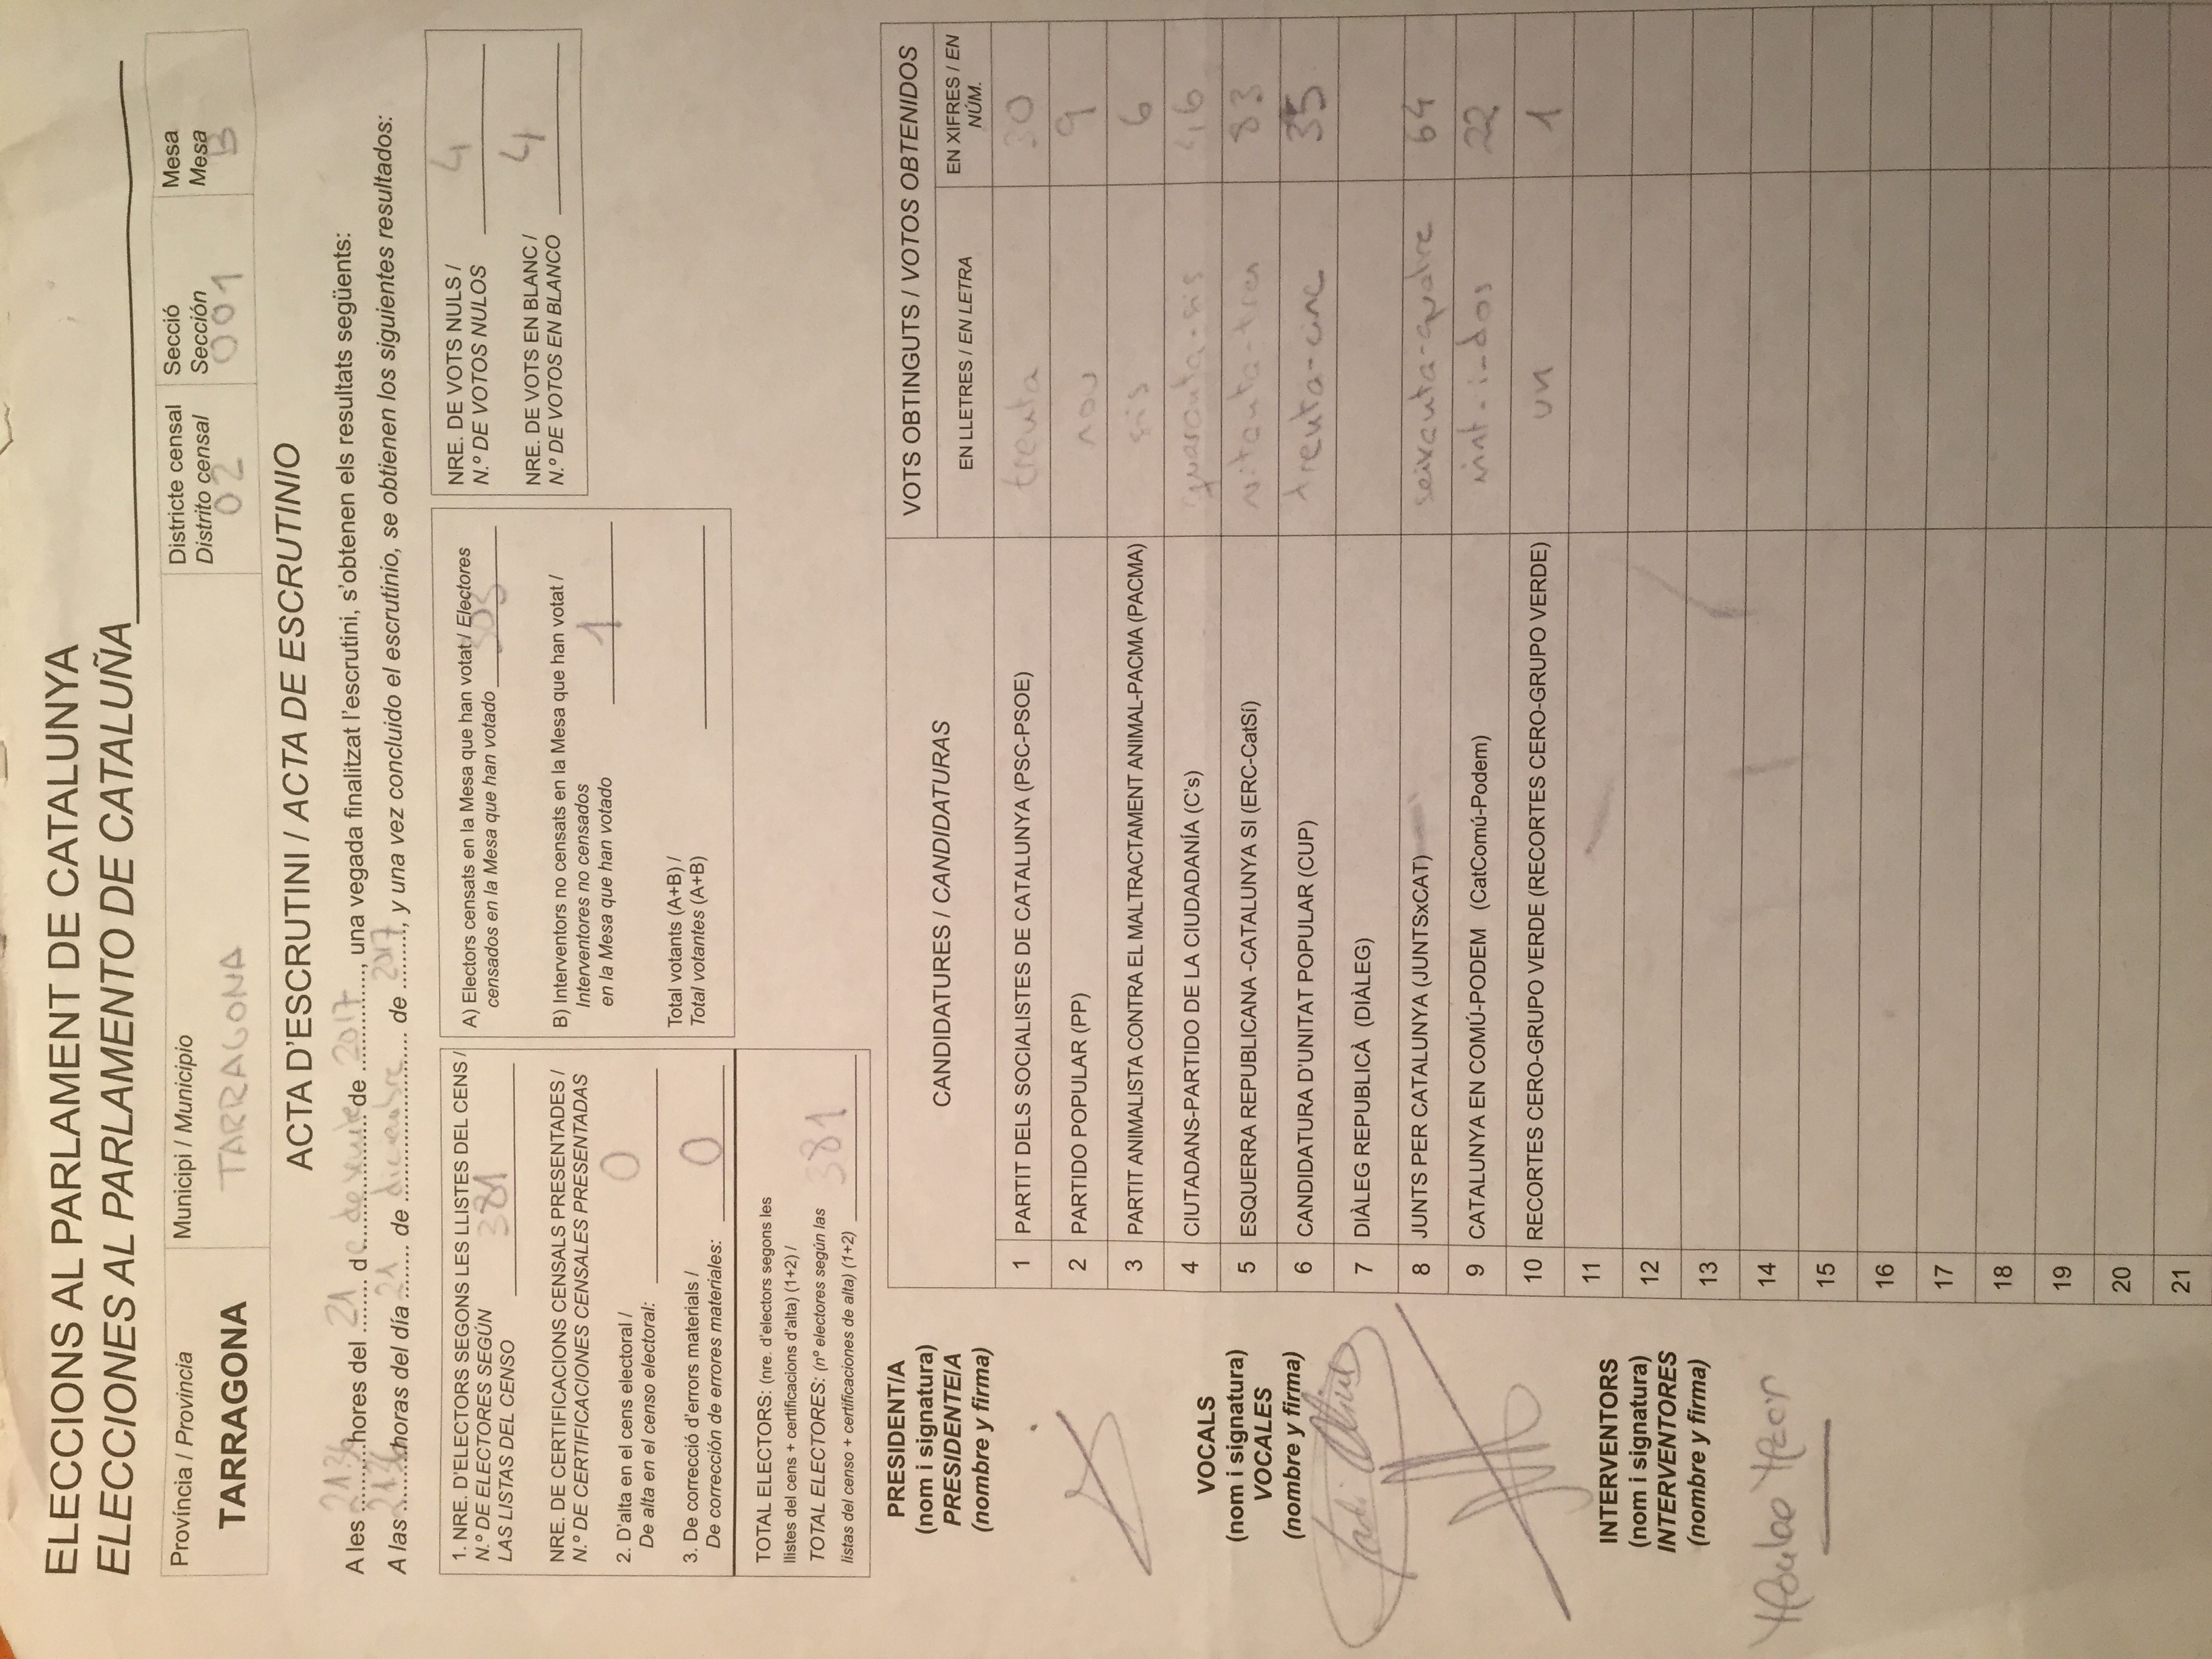 ELECCIONS AL PARLAMENT DE CATALUNYA
ELECCIONES AL PARLAMENTO DE CATALUÑA
Província / Provincia
TARRAGONA
Municipi / Municipio
TARRAGONA
Districte censal
Distrito censal
02
Secció
Sección
001
Mesa
Mesa
B
ACTA D'ESCRUTINI / ACTA DE ESCRUTINIO
A les 2136 hores del 21 de desembre de 2017, una vegada finalitzat l'escrutini, s'obtenen els resultats següents:
A las 2136 horas del día 21 de diciembre de 2017, y una vez concluido el escrutinio, se obtienen los siguientes resultados:
1. NRE. D'ELECTORS SEGONS LES LLISTES DEL CENS /
N.º DE ELECTORES SEGÚN
LAS LISTAS DEL CENSO 381
NRE. DE CERTIFICACIONS CENSALS PRESENTADES /
N.º DE CERTIFICACIONES CENSALES PRESENTADAS
2. D'alta en el cens electoral /
De alta en el censo electoral: 0
3. De correcció d'errors materials /
De corrección de errores materiales: 0
TOTAL ELECTORS: (nre. d'electors segons les
llistes del cens + certificacions d'alta) (1+2) /
TOTAL ELECTORES: (nº electores según las
listas del censo + certificaciones de alta) (1+2) 381
A) Electors censats en la Mesa que han votat / Electores
censados en la Mesa que han votado 303
B) Interventors no censats en la Mesa que han votat /
Interventores no censados
en la Mesa que han votado 1
Total votants (A+B) /
Total votantes (A+B)
NRE. DE VOTS NULS /
N.º DE VOTOS NULOS 4
NRE. DE VOTS EN BLANC /
N.º DE VOTOS EN BLANCO 4
PRESIDENT/A
(nom i signatura)
PRESIDENTE/A
(nombre y firma)
VOCALS
(nom i signatura)
VOCALES
(nombre y firma)
INTERVENTORS
(nom i signatura)
INTERVENTORES
(nombre y firma)
CANDIDATURES / CANDIDATURAS
VOTS OBTINGUTS / VOTOS OBTENIDOS
EN LLETRES / EN LETRA
EN XIFRES / EN
NÚM.
1 PARTIT DELS SOCIALISTES DE CATALUNYA (PSC-PSOE) trenta 30
2 PARTIDO POPULAR (PP) nou 9
3 PARTIT ANIMALISTA CONTRA EL MALTRACTAMENT ANIMAL-PACMA (PACMA) sis 6
4 CIUTADANS-PARTIDO DE LA CIUDADANÍA (C's) quaranta-sis 46
5 ESQUERRA REPUBLICANA -CATALUNYA SI (ERC-CatSí) vitanta-tres 83
6 CANDIDATURA D'UNITAT POPULAR (CUP) trenta-cinc 35
7 DIÀLEG REPUBLICÀ (DIÀLEG)
8 JUNTS PER CATALUNYA (JUNTSxCAT) seixanta-quatre 64
9 CATALUNYA EN COMÚ-PODEM (CatComú-Podem) vint-i-dos 22
10 RECORTES CERO-GRUPO VERDE (RECORTES CERO-GRUPO VERDE) un 1
11
12
13
14
15
16
17
18
19
20
21